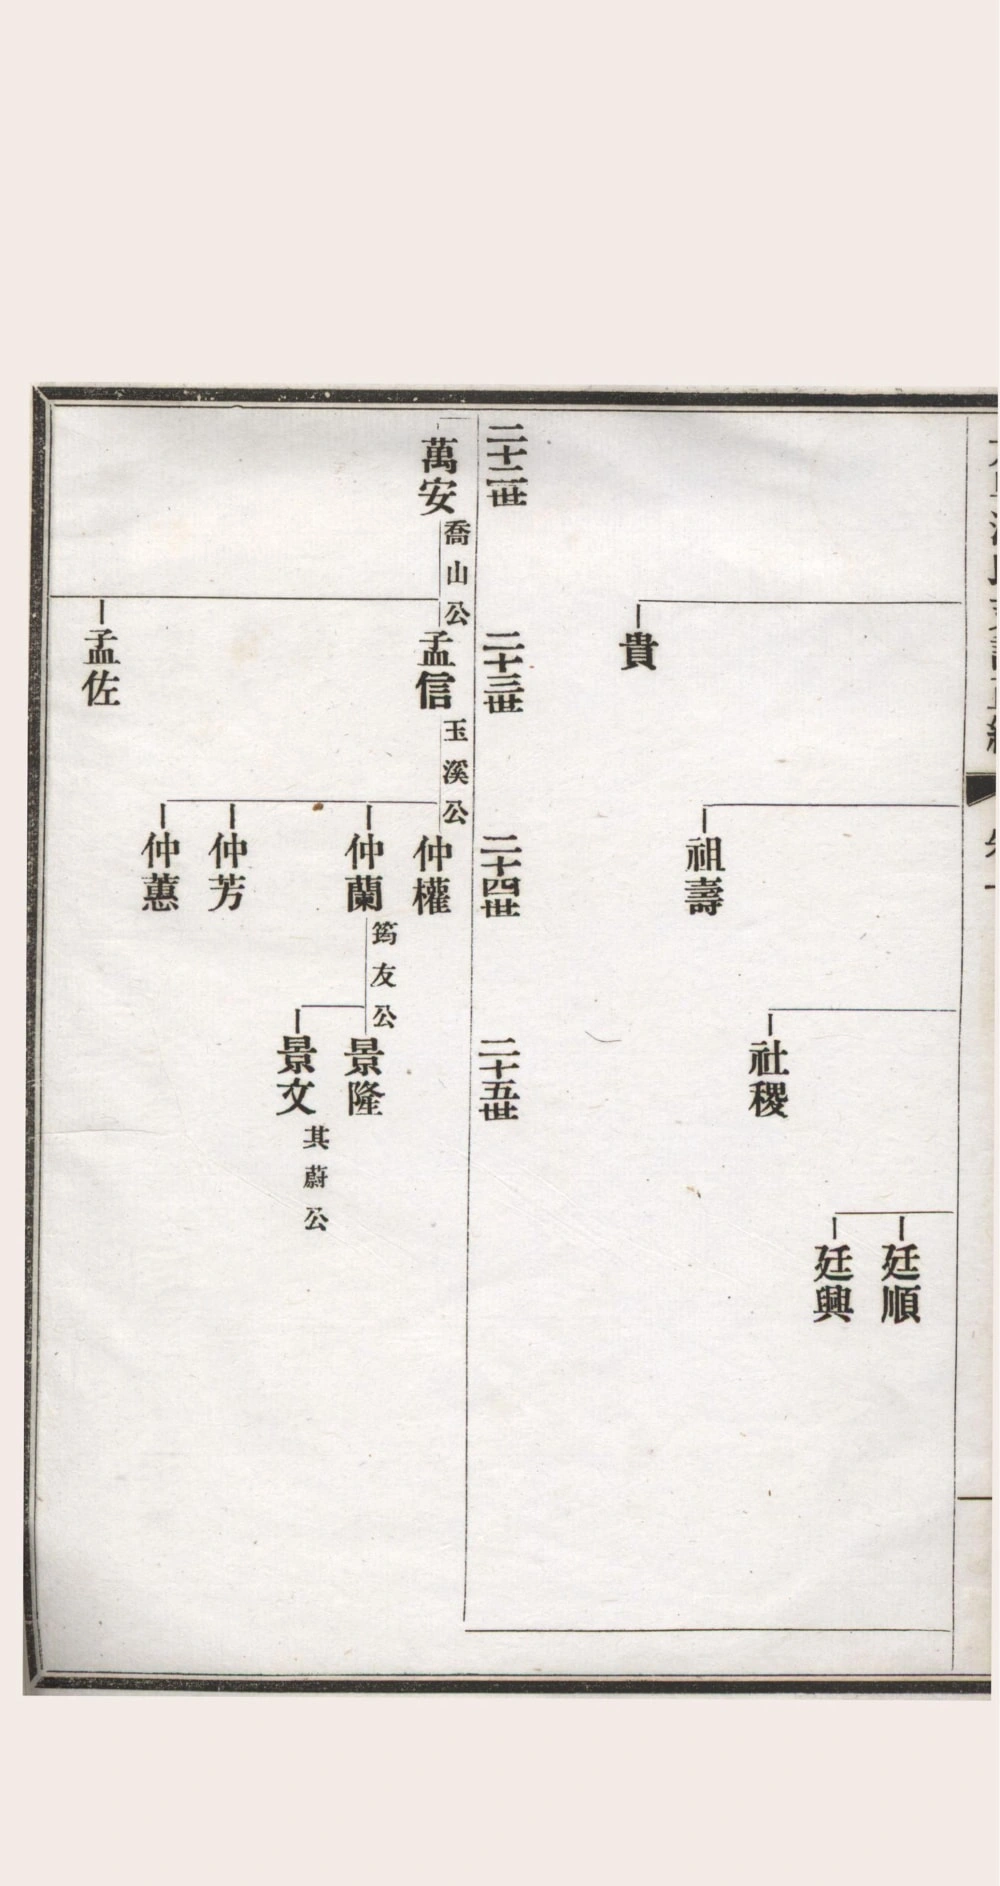 貴
祖壽
社稷
廷順
廷興
二十二世
二十三世
二十四世
二十五世
萬安
喬山公
孟信
玉溪公
仲權
仲蘭
筠友公
景隆
景文
其蔚公
仲芳
仲蕙
孟佐